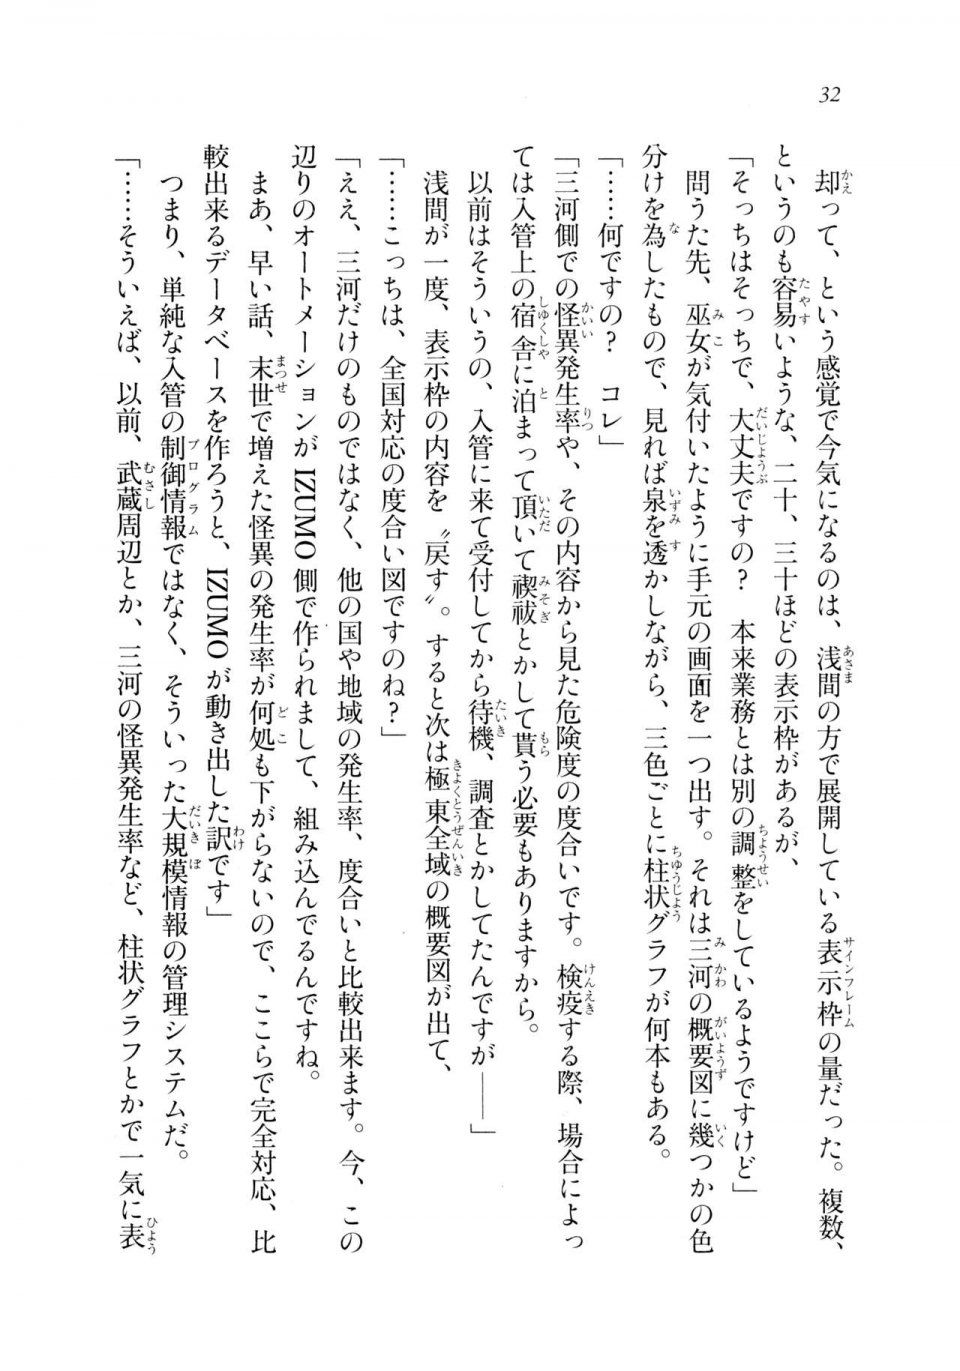 32
却って、という感覚で今気になるのは、浅間の方で展開している表示枠の量だった。複数、
というのも容易いような、二十、三十ほどの表示枠があるが、
「そっちはそっちで、大丈夫ですの？　本来業務とは別の調整をしているようですけど」
問うた先、巫女が気付いたように手元の画面を一つ出す。それは三河の概要図に幾つかの色
分けを為したもので、見れば泉を透かしながら、三色ごとに柱状グラフが何本もある。
「……何ですの？　コレ」
「三河側での怪異発生率や、その内容から見た危険度の度合いです。検疫する際、場合によっ
ては入管上の宿舎に泊まって頂いて禊祓とかして貰う必要もありますから。
以前はそういうの、入管に来て受付してから待機、調査とかしてたんですが――」
浅間が一度、表示枠の内容を〝戻す〟。すると次は極東全域の概要図が出て、
「……こっちは、全国対応の度合い図ですのね？」
「ええ、三河だけのものではなく、他の国や地域の発生率、度合いと比較出来ます。今、この
辺りのオートメーションが IZUMO 側で作られまして、組み込んでるんですね。
まあ、早い話、末世で増えた怪異の発生率が何処も下がらないので、ここらで完全対応、比
較出来るデータベースを作ろうと、IZUMO が動き出した訳です」
つまり、単純な入管の制御情報ではなく、そういった大規模情報の管理システムだ。
「……そういえば、以前、武蔵周辺とか、三河の怪異発生率など、柱状グラフとかで一気に表